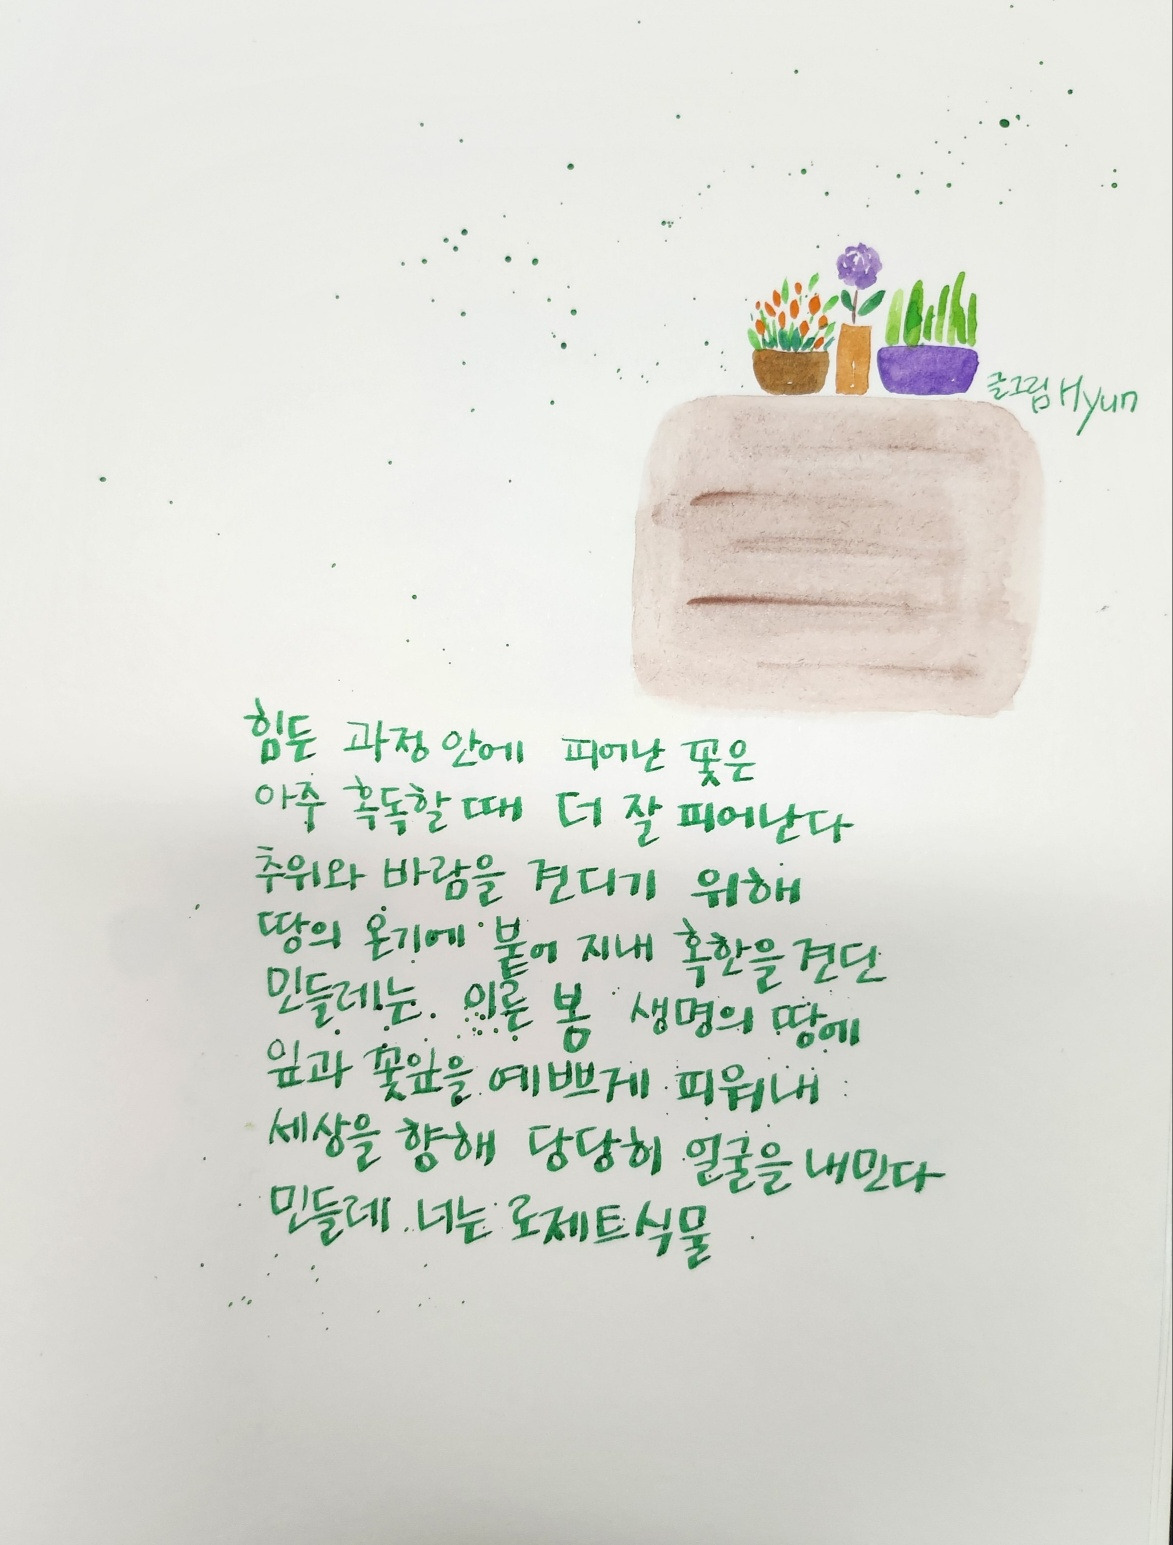 글그림 Hyun
힘든 과정 안에 피어난 꽃은
아주 혹독할 때 더 잘 피어난다
추위와 바람을 견디기 위해
땅의 온기에 붙어 지내 혹한을 견딘
민들레는 이른 봄 생명의 땅에
잎과 꽃잎을 예쁘게 피워내
세상을 향해 당당히 얼굴을 내민다
민들레 너는 로제트식물